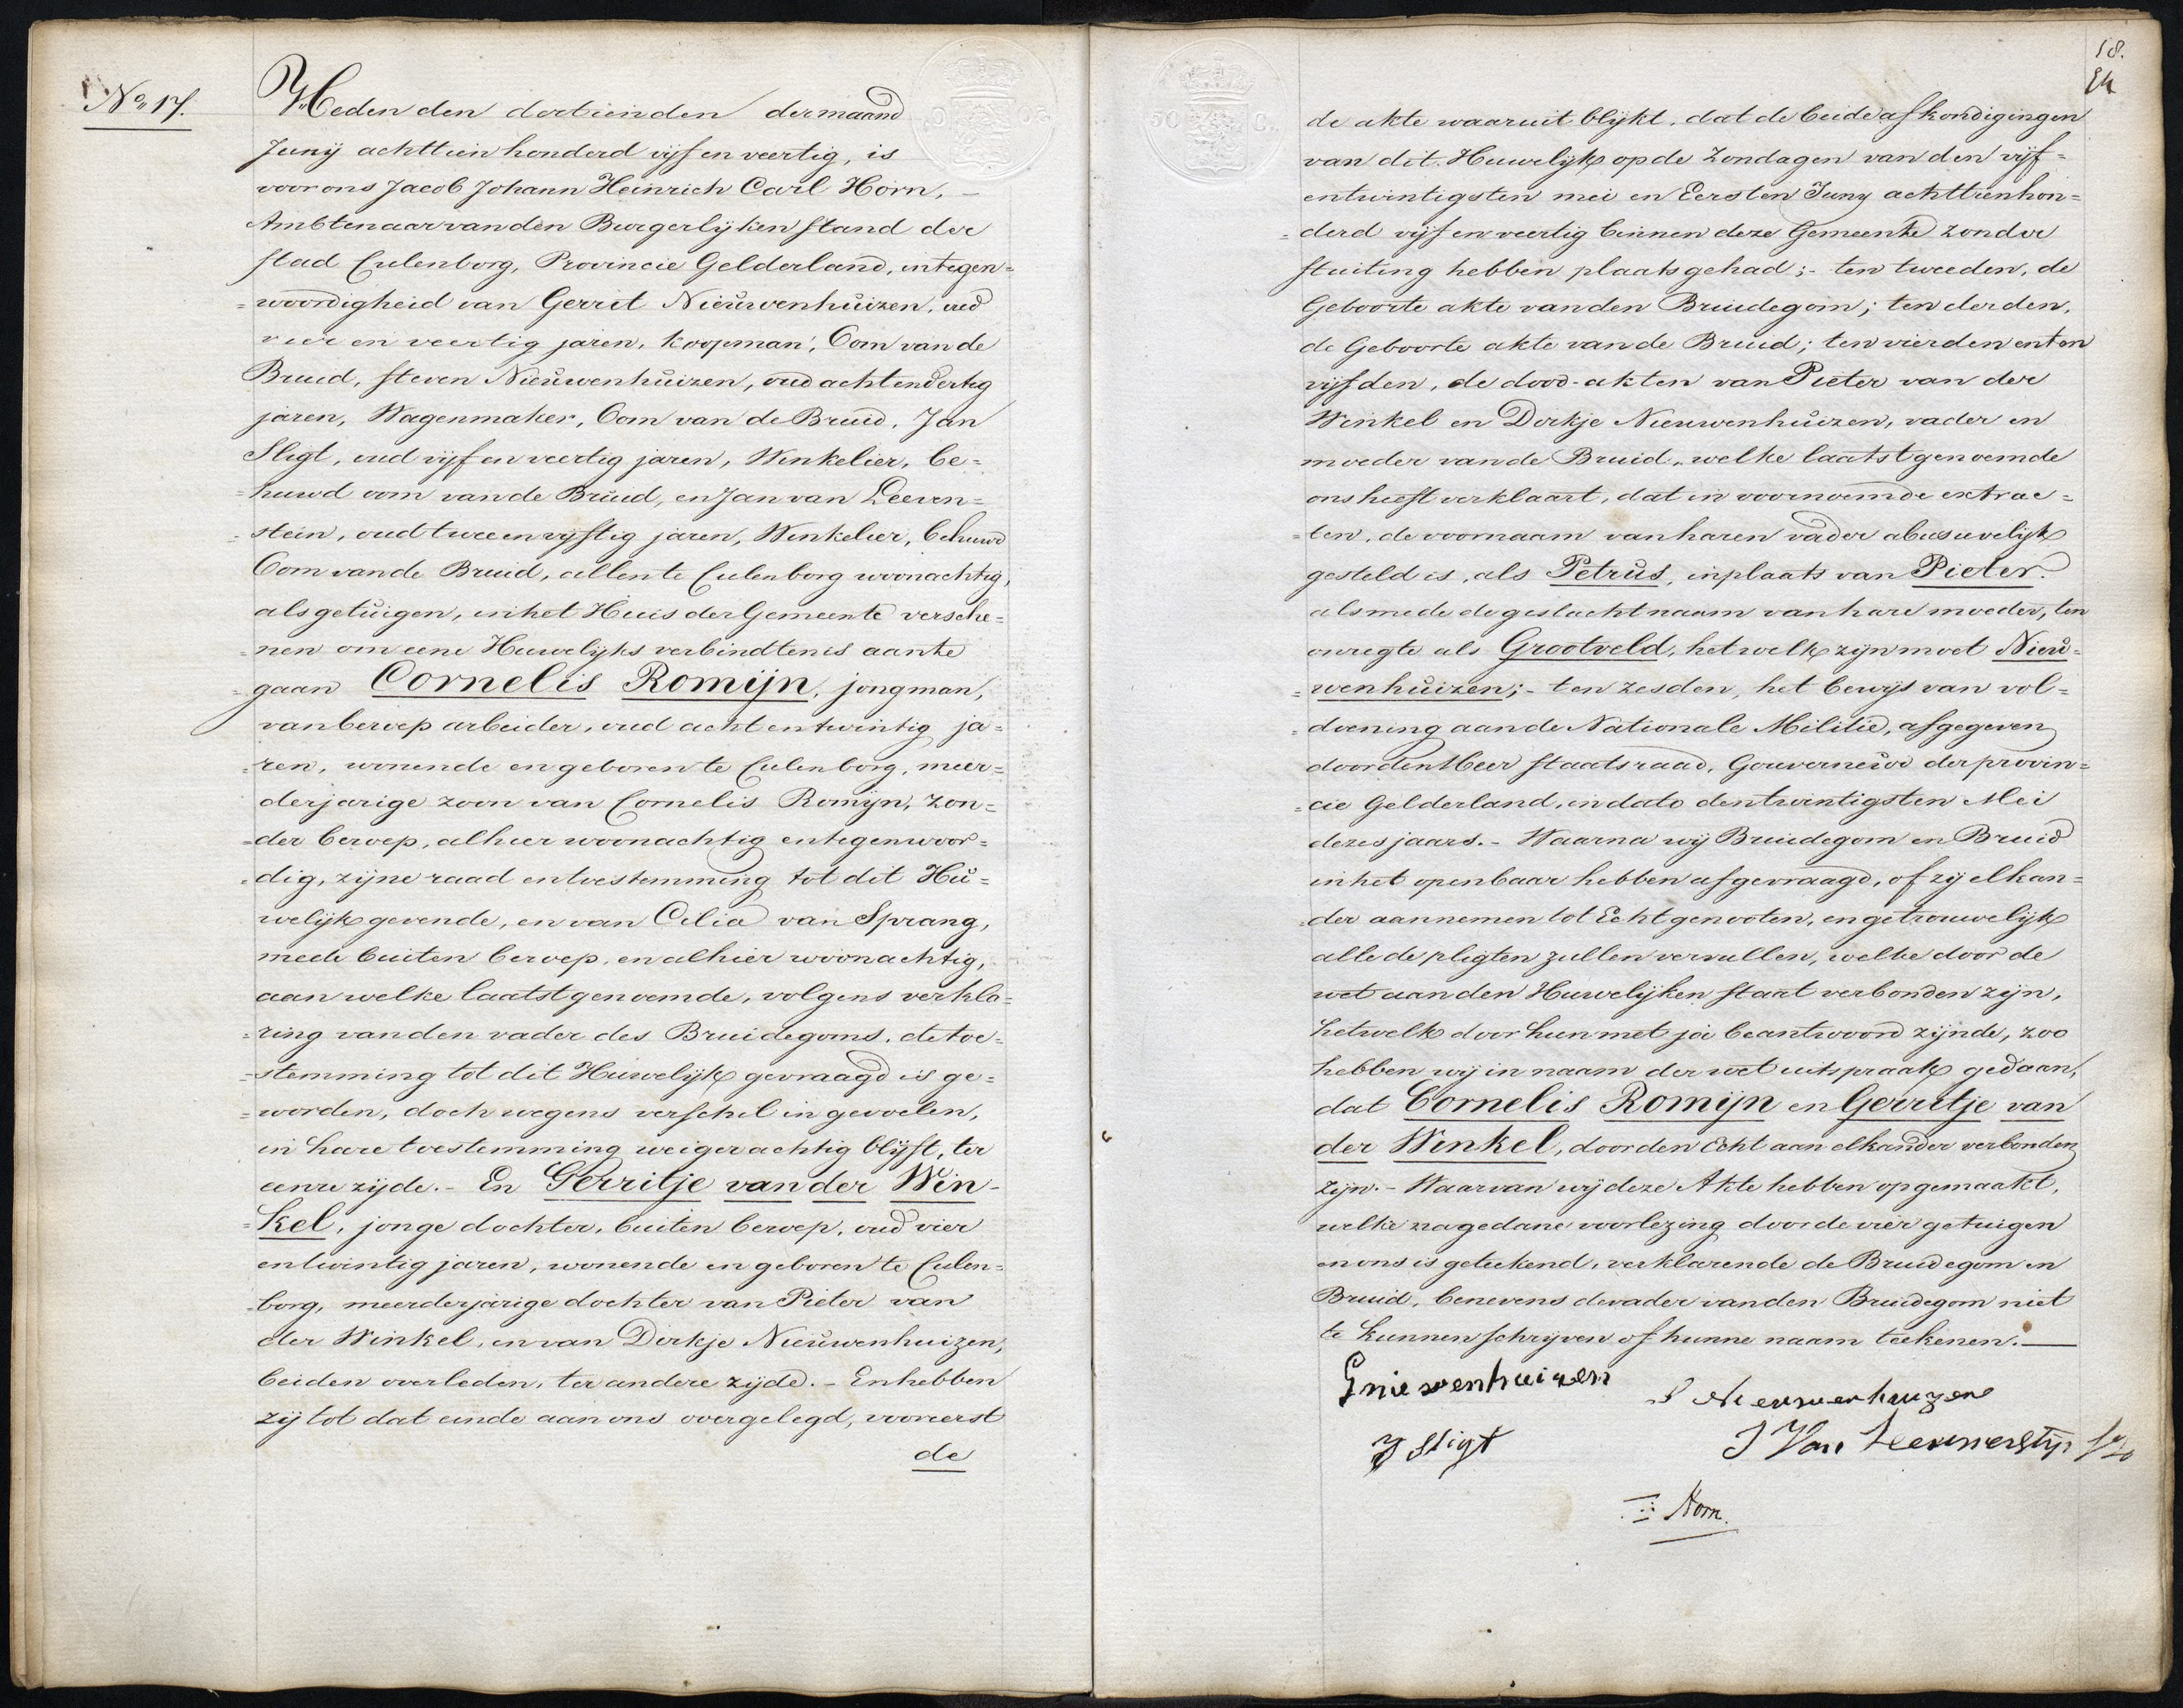 No. 17.
Heden den dertienden der maand
Junij achttien honderd vijf en veertig, is
voor ons Jacob Johann Heinrich Carl Horn, –
Ambtenaar van den Burgerlijken stand der
stad Culenborg, Provincie Gelderland, in tegen=
=woordigheid van Gerrit Nieuwenhuizen, oud
vier en veertig jaren, koopman, Oom van de
Bruid, Steven Nieuwenhuizen, oud acht en dertig
jaren, Wagenmaker, Oom van de Bruid, Jan
Sligt, oud vijf en veertig jaren, Winkelier, be=
=huwd oom van de Bruid, en Jan van Leeven=
=stein, oud twee en vijftig jaren, Winkelier, behuwd
Oom van de Bruid, allen te Culenborg woonachtig,
als getuigen, in het Huis der Gemeente versche=
=nen om eene Huwelijks verbindtenis aan te
=gaan Cornelis Romijn, jongman,
van beroep arbeider, oud acht en twintig ja=
=ren, wonende en geboren te Culenborg, meer=
derjarige zoon van Cornelis Romijn, zon=
=der beroep, alhier woonachtig en tegenwoor=
=dig, zijne raad en toestemming tot dit Hu=
welijk gevende, en van Celia van Sprang,
mede buiten beroep, en alhier woonachtig,
aan welke laatstgenoemde, volgens verkla=
=ring van den vader des Bruidegoms, de toe=
=stemming tot dit Huwelijk gevraagd is ge=
=worden, doch wegens verschil in gevoelen,
in hare toestemming weigerachtig blijft, ter
eenre zijde. – En Gerritje van der Win-
=kel, jonge dochter, buiten beroep, oud vier
en twintig jaren, wonende en geboren te Culen=
=borg, meerderjarige dochter van Pieter van
der Winkel, en van Dirkje Nieuwenhuizen,
beiden overleden, ter andere zijde. – En hebben
zij tot dat einde aan ons overgelegd, vooreerst
de
18.
50 C.
de akte waaruit blijkt, dat de beide afkondigingen
van dit Huwelijk op de Zondagen van den vijf=
entwintigsten mei en Eersten Juny achttienhon=
=derd vijf en veertig binnen deze Gemeente zonder
stuiting hebben plaats gehad; – ten tweeden, de
Geboorte akte van den Bruidegom; ten derden,
de Geboorte akte van de Bruid; ten vierden en ten
vijfden, de dood-akten van Pieter van der
Winkel en Dirkje Nieuwenhuizen, vader en
moeder van de Bruid, welke laatstgenoemde
ons heeft verklaart, dat in voornoemde extrac=
=ten, de voornaam van haren vader abusivelijk
gesteld is, als Petrus, in plaats van Pieter.
alsmede de geslachtnaam van hare moeder, ten
onregte als Grootveld, hetwelk zijn moet Nieu=
=wenhuizen; – ten zesden, het bewijs van vol=
=doening aan de Nationale Militie, afgegeven
door den Heer Staatsraad, Gouverneur der provin=
=cie Gelderland, in dato den twintigsten Mei
dezes jaars. – Waarna wij Bruidegom en Bruid
in het openbaar hebben afgevraagd, of zij elkan=
=der aannemen tot Echtgenooten, en getrouwelijk
alle de pligten zullen vervullen, welke door de
wet aan den Huwelijken staat verbonden zijn,
hetwelk door hun met ja beantwoord zijnde, zoo
hebben wij in naam der wet uitspraak gedaan,
dat Cornelis Romijn en Gerritje van
der Winkel, door den Echt aan elkander verbonden
zijn. – Waarvan wij deze Akte hebben opgemaakt,
welke na gedane voorlezing door de vier getuigen
en ons is geteekend, verklarende de Bruidegom en
Bruid, benevens de vader van den Bruidegom niet
te kunnen schrijven of hunne naam teekenen. —
G nieuwenhuizen
S Nieuwenhuizen
J Sligt
J Van Leeuwenstijn
Horn.